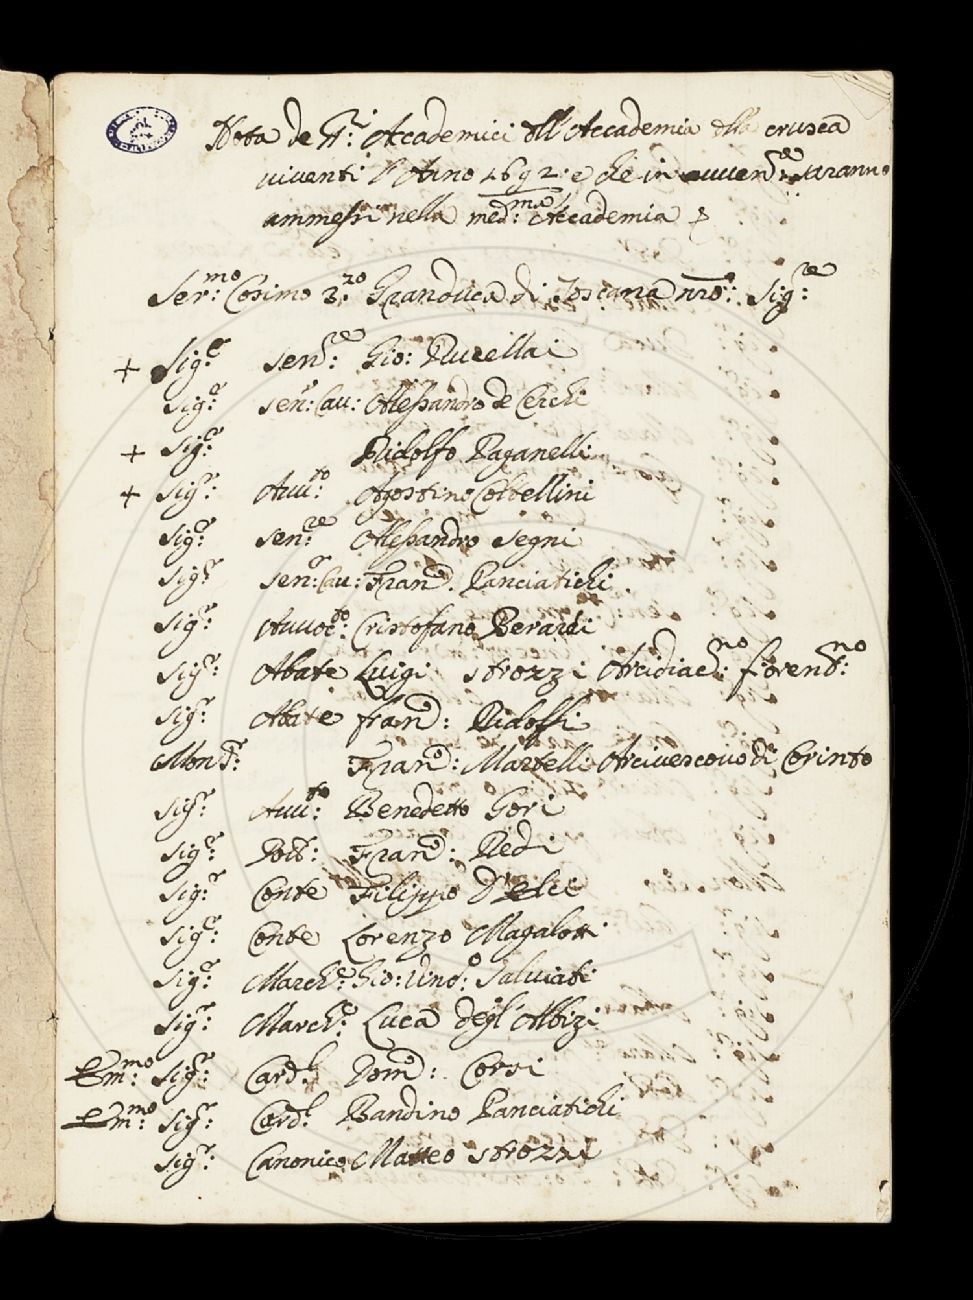 Nota de SS.ri Accademici dell'Accademia della crusca
viventi l'Anno 1692: e che in avven.re saranno
ammessi nella med:ma Accademia
Ser:mo Cosimo 3:zo Granduca di Toscana nro: Sig:re
+ Sig:re Sen:re Gio: Rucellai
Sig:r Sen:r Cav: Alessandro de Cerchi
+ Sig:r Ridolfo Paganelli
+ Sig:r Avv:to Agostino Coltellini
Sig:r Sen:re Alessandro Segni
Sig:r Sen:r Cav: Franc:o Panciatichi
Sig:r Avvoc:to Cristofano Berardi
Sig:r Abate Luigi Strozzi Arcidiac:no fiorent:no
Sig:r Abate Franc:o Ridolfi
Mons:r Franc:o Martelli Arcivescovo di Corinto
Sig:r Avv:to Benedetto Gori
Sig:r Dott: Franc:o Redi
Sig:r Conte Filippo D'elci
Sig:r Conte Lorenzo Magalotti
Sig:r March:e Gio: Vinc:o Salviati
Sig:r March:e Luca degl'Albizi
Em:mo Sig:r Card:l Dom:o Corsi
Em:mo Sig:r Card:l Bandino Panciatichi
Sig:r Canonico Matteo Strozzi